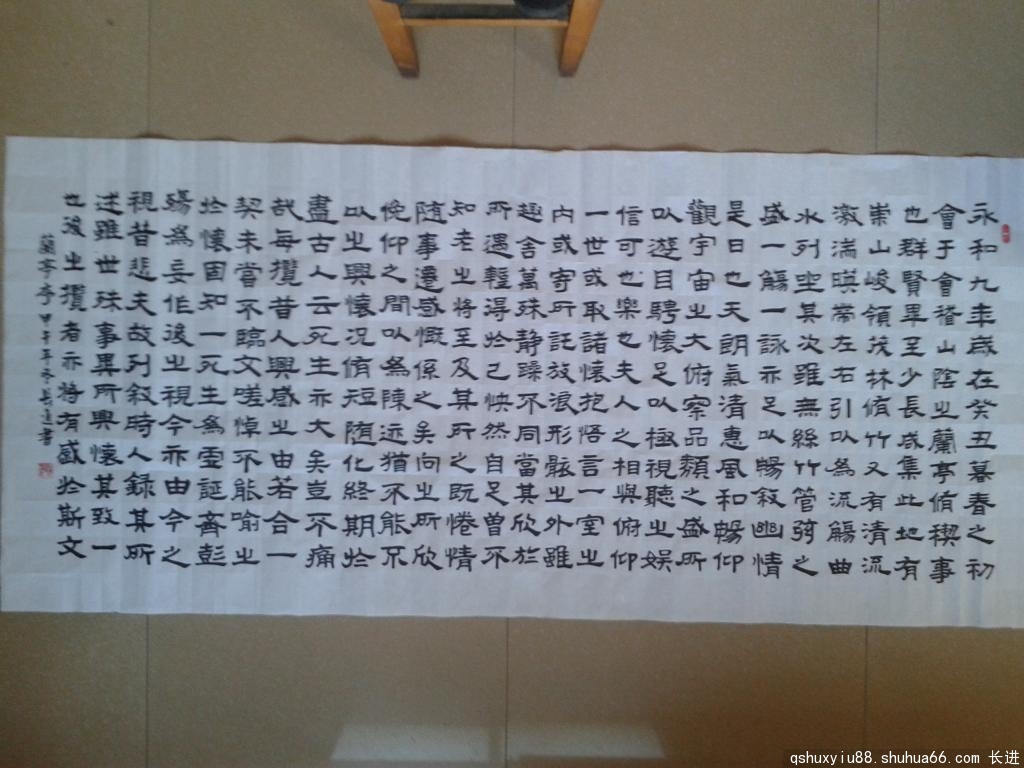 永和九年歲在癸丑暮春之初
會于會稽山陰之蘭亭脩稧事
也群賢畢至少長咸集此地有
崇山峻領茂林脩竹又有清流
激湍暎帶左右引以為流觴曲
水列坐其次雖無絲竹管弦之
盛一觴一詠亦足以暢敘幽情
是日也天朗氣清惠風和暢仰
觀宇宙之大俯察品類之盛所
以遊目騁懷足以極視聽之娛
信可也樂也夫人之相與俯仰
一世或取諸懷抱悟言一室之
內或寄所託放浪形骸之外雖
趣舍萬殊静躁不同當其欣於
所遇蹔得於己怏然自足曾不
知老之將至及其所之既惓情
随事遷感慨係之矣向之所欣
俛仰之間以為陳迹猶不能不
以之興懷況脩短随化終期於
盡古人云死生亦大矣豈不痛
哉每攬昔人興感之由若合一
契未嘗不臨文嗟悼不能喻之
於懷固知一死生為虛誕齊彭
殤為妄作後之視今亦由今之
視昔悲夫故列敘時人錄其所
述雖世殊事異所興懷其致一
也後之攬者亦將有感於斯文
蘭亭序 甲午年冬長進書
qshuxyiu88.shuhua66.com 长进